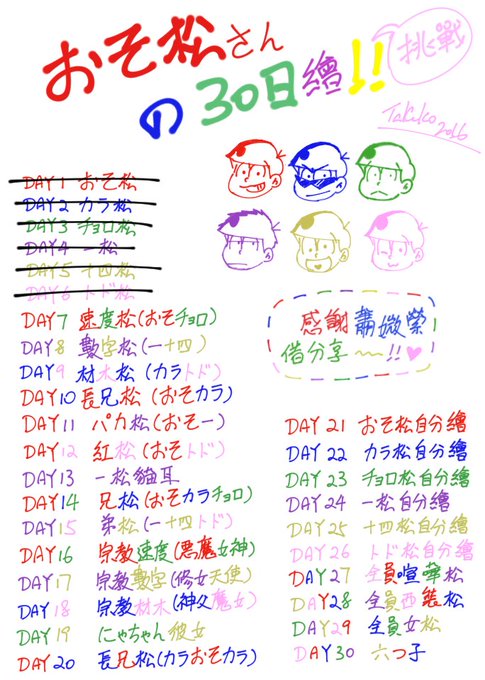 おそ松さん
の30日繪!!
挑戰
Takiko
2016
DAY1 おそ松
DAY2 カラ松
DAY3 チョロ松
DAY4 一松
DAY5 十四松
DAY6 トド松
DAY7 速度松(おそチョロ)
DAY8 數字松(一十四)
DAY9 材木松(カラトド)
DAY10 長兄松(おそカラ)
DAY11 パカ松(おそ一)
DAY12 紅松(おそトド)
DAY13 一松貓耳
DAY14 兄松(おそカラチョロ)
DAY15 弟松(一十四トド)
DAY16 宗教速度(惡魔女神)
DAY17 宗教數字(修女天使)
DAY18 宗教材木(神父魔女)
DAY19 にゃちゃん彼女
DAY20 長兄松(カラおそカラ)
感謝蕭媺縈
借分享~~!!♥
DAY21 おそ松自分繪
DAY22 カラ松自分繪
DAY23 チョロ松自分繪
DAY24 一松自分繪
DAY25 十四松自分繪
DAY26 トド松自分繪
DAY27 全員喧嘩松
DAY28 全員西裝松
DAY29 全員女松
DAY30 六つ子